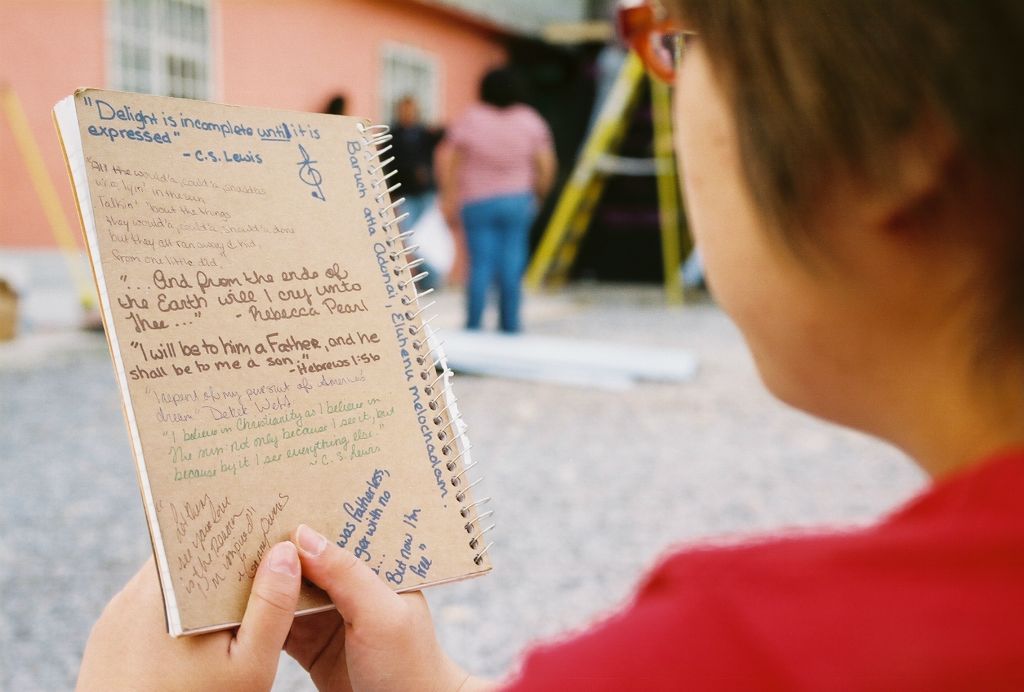 "Delight is incomplete until it is
expressed"
- C.S. Lewis
"All the would'a, could'a, should'as
layin' in the sun
Talkin' 'bout the things
they would'a, could'a, should'a done
but they all ran away & hid
from one little did.
"... And from the ends of
the Earth will I cry unto
Thee..." - Rebecca Pearl
"I will be to him a Father, and he
shall be to me a son." - Hebrews 1:5b
"I repent of my pursuit of America's
dream" Derek Webb
"I believe in Christianity as I believe in
the sun: Not only because I see it, but
because by it I see everything else."
~ C.S. Lewis
see your love
is the reason
was fatherless,
with no
But now I'm
free"
Baruch atta Adonai, Eluhenu melochaolam.